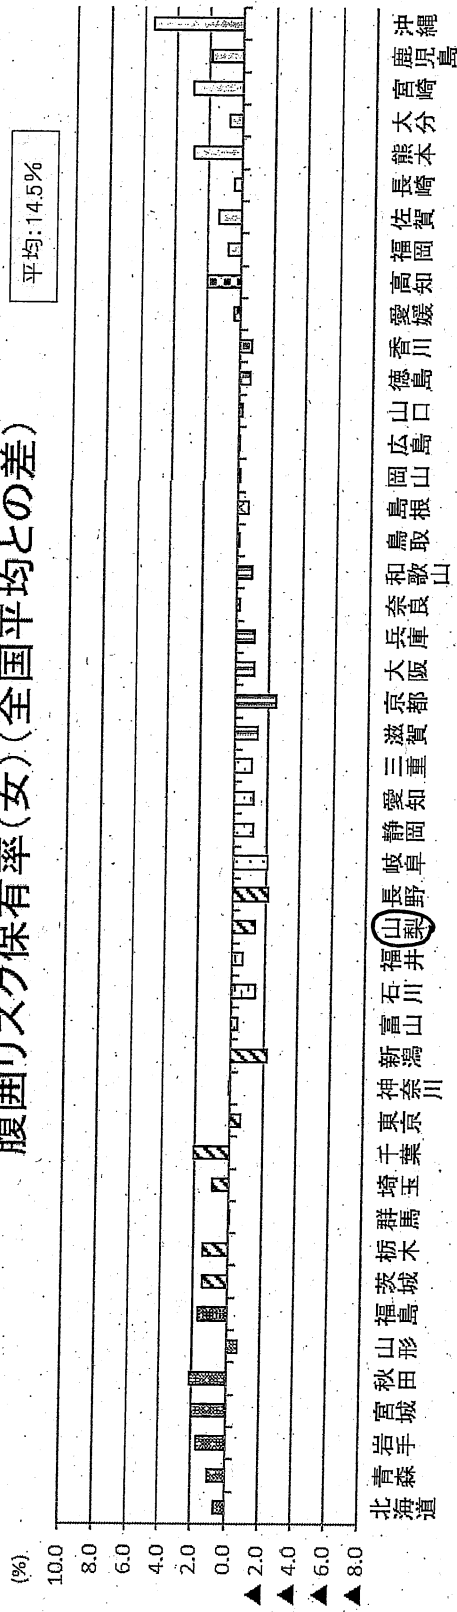 腹囲リスク保有率(女)(全国平均との差)
(%)
平均:14.5%
10.0
8.0
6.0
4.0
2.0
0.0
▲ 2.0
▲ 4.0
▲ 6.0
▲ 8.0
北海道
青森
岩手
宮城
秋田
山形
福島
茨城
栃木
群馬
埼玉
千葉
東京
神奈川
新潟
富山
石川
福井
山梨
長野
岐阜
静岡
愛知
三重
滋賀
京都
大阪
兵庫
奈良
和歌山
鳥取
島根
岡山
広島
山口
徳島
香川
愛媛
高知
福岡
佐賀
長崎
熊本
大分
宮崎
鹿児島
沖縄